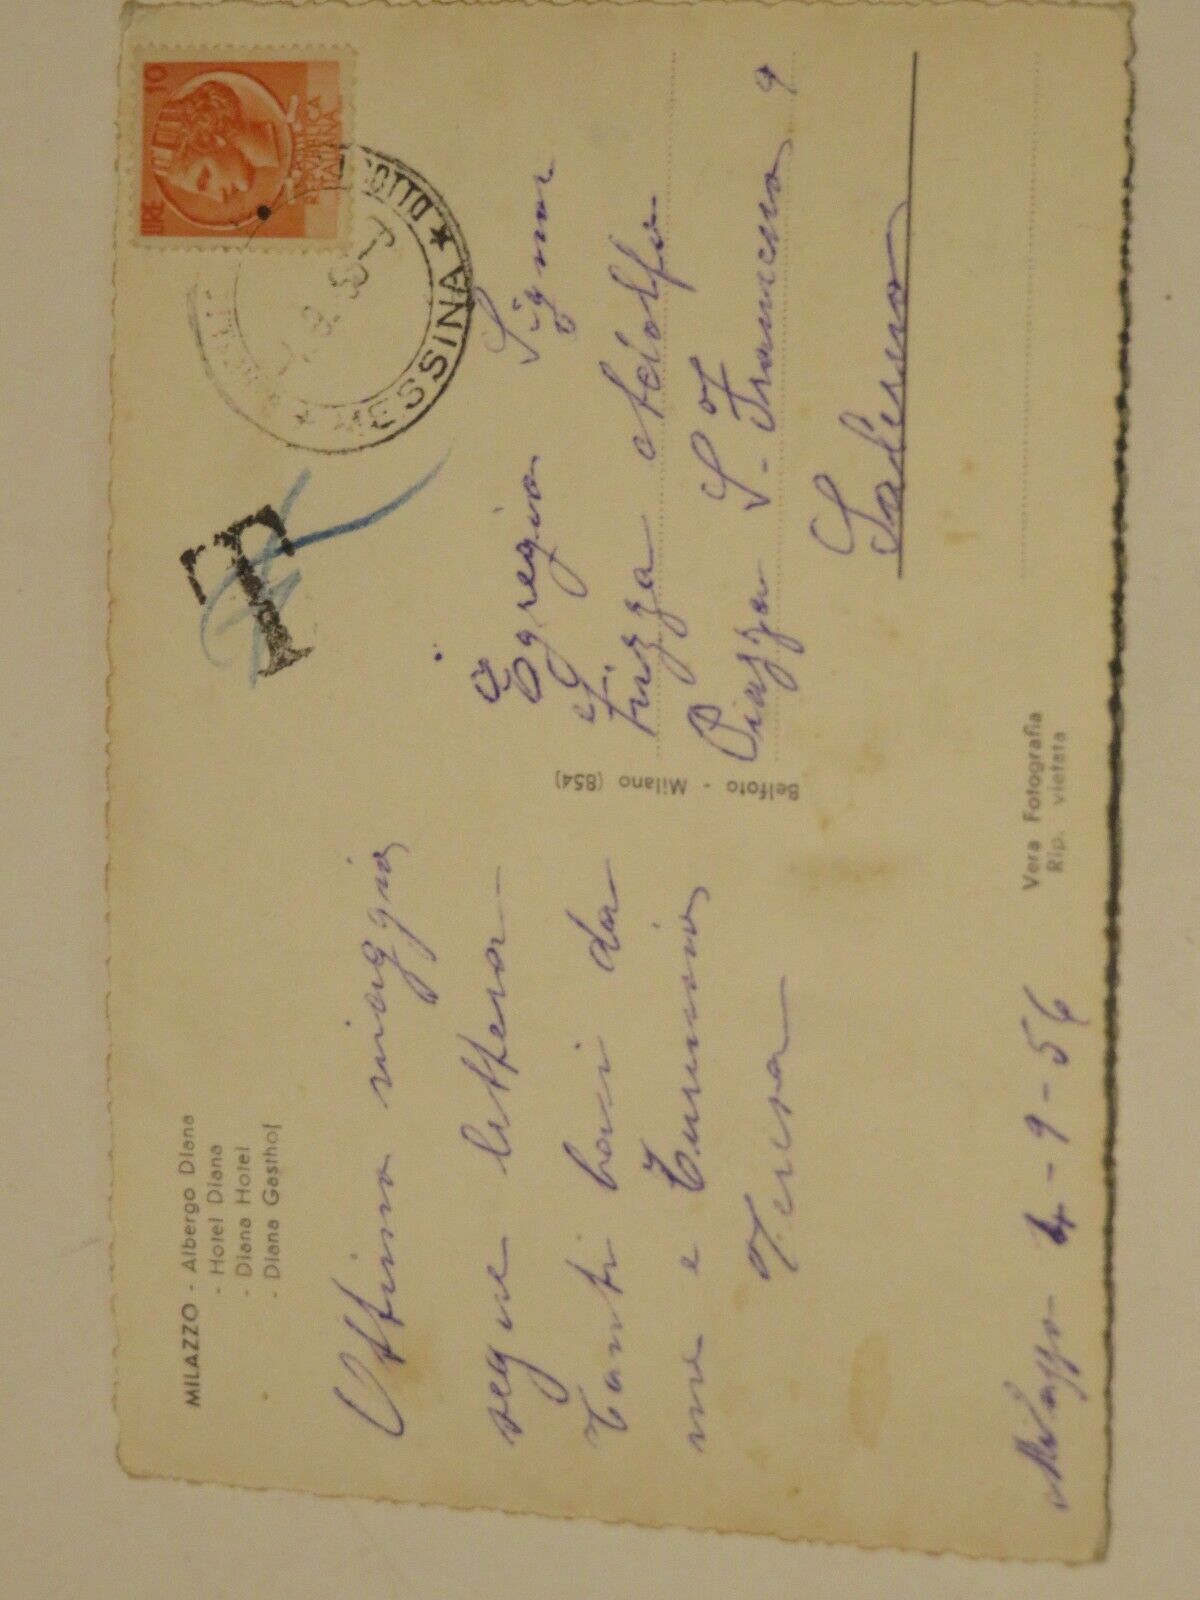 MILAZZO - Albergo Diana
- Hotel Diana
- Diana Hotel
- Diana Gasthof
Ottimo viaggio
segue lettera
Tanti baci da
me e
Teresa
Milazzo 4-9-56
Belfoto - Milano (854)
Vera Fotografia
Rip. vietata
T
LIRE 10
REPUBBLICA
ITALIANA
* MESSINA *
Egregio Signor
Adolfo
Piazza S. Francesco 9
Salerno